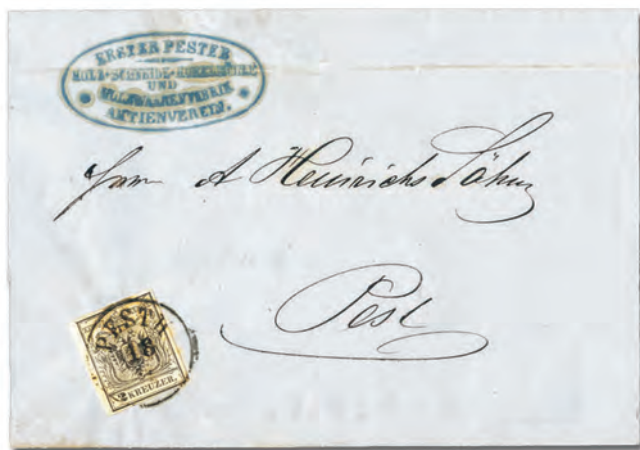 ERSTER PESTER
HOLZ-SCHNEIDE-
UND
AKTIENVEREIN.
A Heinrichs Söhne
Pest
PESTH
18
2 KREUZER.